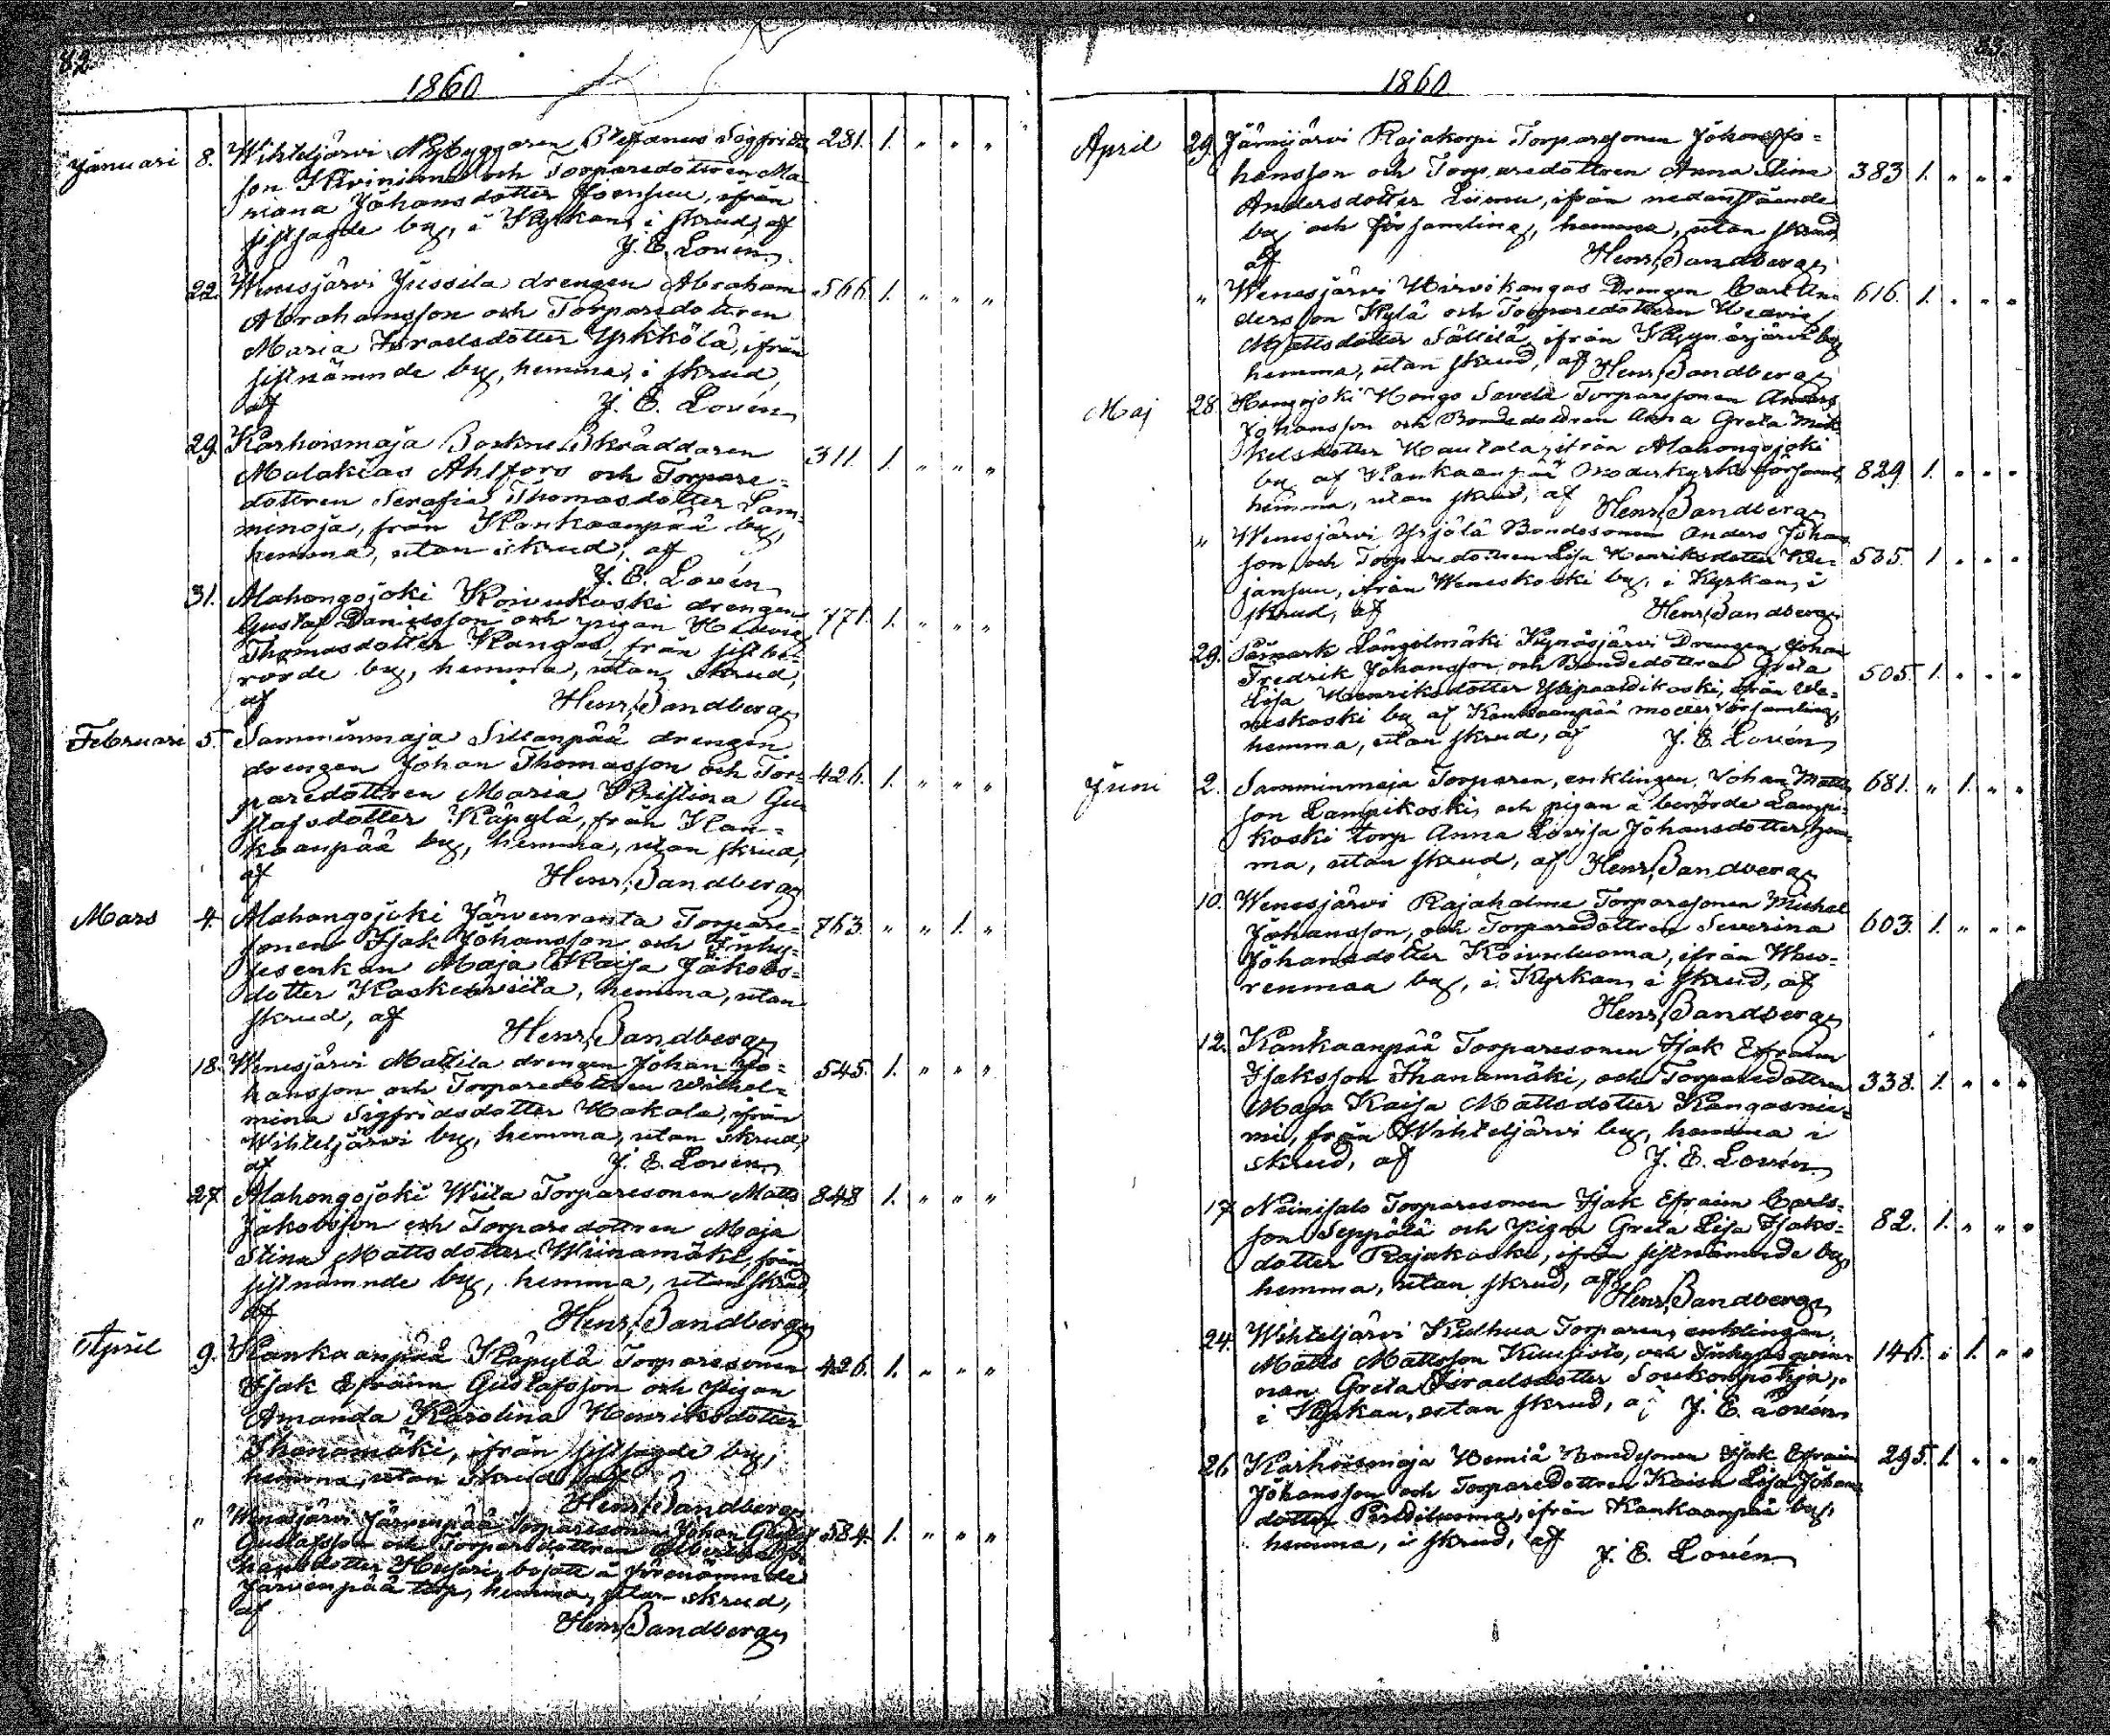 82.
1860
Januari 8. Wihteljärvi Nybyggaren Stefanus Sigfrids 281. 1. " " "
son Kivinieme och Torparedottren Ma-
riana Johansdotter Joensuu, ifrån
sistsagde by, i Kyrkan, i skrud, af
J. E. Lovén.
22. Wenesjärvi Jussila drengen Abraham 566. 1. " " "
Abrahamsson och Torparedottren
Maria Israelsdotter Yrkkölä, ifrån
sistnämnde by, hemma, i skrud,
af J. E. Lovén
29. Karhoismaja Sockne Skräddaren 311. 1. " " "
Malakias Ahlfors och Torpare-
dottren Serafia Thomasdotter Lam-
minoja, från Kankaanpää by,
hemma, utan skrud, af
J. E. Lovén
31. Alahongojoki Koivukoski drengen 771. 1. " " "
Gustaf Danielsson och pigan Hedvig
Thomasdotter Kangas, från sist be-
rörde by, hemma, utan skrud,
af Henr. Sandberg
Februari 5. Samminmaja Sillanpää drengen
drengen Johan Thomasson och Tor- 426. 1. " " "
paredottren Maria Kristina Gu-
stafsdotter Käpylä, från Kan-
kaanpää by, hemma, utan skrud,
af Henr. Sandberg
Mars 4. Alahongojoki Järvenranta Torpare- 763. " " 1. "
sonen Isak Johansson och Inhy-
sesenkan Maja Kaisa Jakobs-
dotter Koskenviita, hemma, utan
skrud, af
Henr. Sandberg
18. Wenesjärvi Mattila drengen Johan Jo- 545. 1. " " "
hansson och Torparedottren Wilhel-
mina Sigfridsdotter Hakala, ifrån
Wihteljärvi by, hemma, utan skrud,
af J. E. Lovén
27. Alahongojoki Wiita Torparesonen Matts 848 1. " " "
Jakobsson och Torparedottren Maja
Stina Mattsdotter Wiinamäki, från
sistnämnde by, hemma, utan skrud,
af Henr. Sandberg
April 9. Kankaanpää Käpylä Torparesonen 426. 1. " " "
Isak Efraim Gustafsson och Pigan
Amanda Karolina Henriksdotter
Ihanamäki, ifrån sistsagde by,
hemma, utan skrud, af
Henr. Sandberg
" Wenesjärvi Järvenpää Torparesonen Johan Gustaf 584. 1. " " "
Gustafsson och Torparedottren Albertina Jo-
hansdotter Husari, bosatt å förenämnde
Järvenpää torp, hemma, utan skrud,
af
Henr. Sandberg
83.
1860
April 29. Jämijärvi Rajakorpi Torparesonen Johan Jo-
hansson och Torparedottren Anna Stina 383 1. " " "
Andersdotter Luoma, ifrån nedanstående
by och församling, hemma, utan skrud,
af Henr. Sandberg
" Wenesjärvi Hirvikangas Drengen Carl An- 616. 1. " " "
dersson Kylä och Torparedottren Hedvig
Mattsdotter Sällilä, ifrån Kynäsjärvi by
hemma, utan skrud, af Henr. Sandberg
Maj 28. Hongojoki Hongo Savela Torparesonen Anders
Johansson och Bondedottren Anna Greta Mik-
kelsdotter Hautala, ifrån Alahongojoki
by af Kankaanpää moderkyrko församl. 829 1. " " "
hemma, utan skrud, af Henr. Sandberg
" Wenesjärvi Yrjölä Bondesonen Anders Johans
son och Torparedottren Lisa Henriksdotter We- 535. 1. " " "
jansuu, ifrån Weneskoski by, i Kyrkan, i
skrud, af Henr. Sandberg
29. Påmark Längelmäki Kynäsjärvi Drengen Johan
Fredrik Johansson och Bondedottren Greta 505. 1. " " "
Lisa Henriksdotter Ylipaaldikoski, ifrån We-
neskoski by af Kankaanpää moder församling,
hemma, utan skrud, af J. E. Lovén
Juni 2. Samminmaja Torparen, enklingen, Johan Matts 681. " 1. " "
son Lampikoski, och pigan å berörde Lampi-
koski torp Anna Lovisa Johansdotter, hem-
ma, utan skrud, af Henr. Sandberg
10. Wenesjärvi Rajahalme Torparesonen Michel
Johansson, och Torparedottren Severina 603. 1. " " "
Johansdotter Koivuluoma, ifrån Wuo-
renmaa by, i Kyrkan, i skrud, af
Henr. Sandberg
12. Kankaanpää Torparesonen Isak Efraim
Isaksson Ihanamäki, och Torparedottren 338. 1. " " "
Maja Kaisa Mattsdotter Kangasnie-
mi, från Wihteljärvi by, hemma i
skrud, af J. E. Lovén
17. Niinisalo Torparesonen Isak Efraim Carls-
son Seppälä och Pigan Greta Lisa Isaks- 82. 1. " " "
dotter Rajakoski, ifrån sistnämnde by,
hemma, utan skrud, af Henr. Sandberg
24. Wihteljärvi Kulhua Torparen, enklingen,
Matts Mattsson Kuusisto, och Inhyses qvin- 146. " 1. " "
nan Greta Israelsdotter Soukonpohja,
i Kyrkan, utan skrud, af J. E. Lovén
26. Karhoismaja Hemiä Bondesonen Isak Efraim 295. 1. " " "
Johansson och Torparedottren Kaisa Lisa Johans
dotter Perldiluoma, ifrån Kankaanpää by,
hemma, i skrud, af J. E. Lovén